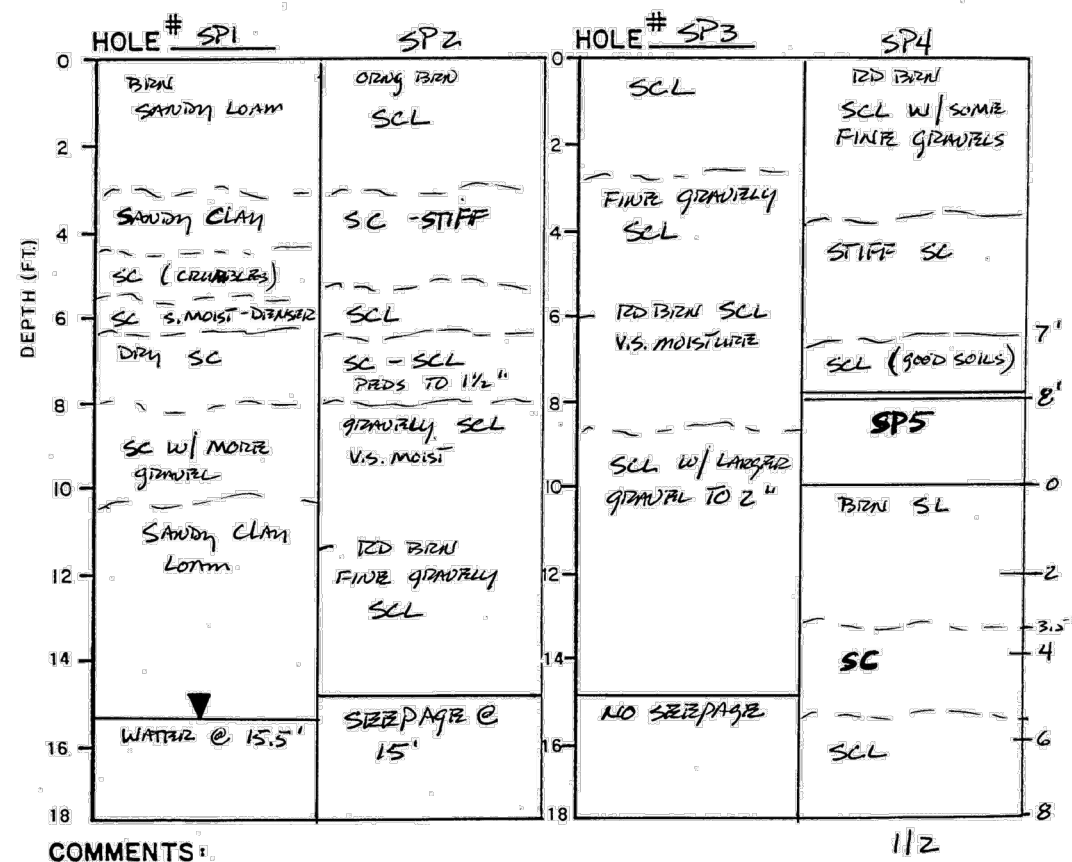 HOLE # SP1
SP2
HOLE # SP3
SP4
DEPTH (FT.)
0
2
4
6
8
10
12
14
16
18
BRN
SANDY LOAM
SANDY CLAY
SC (CRUMBLES)
SC S.MOIST-DENSER
DRY SC
SC W/ MORE
GRAVEL
SANDY CLAY
LOAM
WATER @ 15.5'
ORNG BRN
SCL
SC -STIFF
SCL
SC - SCL
PEDS TO 1½"
GRAVELLY SCL
V.S. MOIST
RD BRN
FINE GRAVELY
SCL
SEEPAGE @
15'
0
2
4
6
8
10
12
14
16
18
SCL
FINE GRAVELY
SCL
RD BRN SCL
V.S. MOISTURE
SCL W/ LARGER
GRAVEL TO 2"
NO SEEPAGE
RD BRN
SCL W/ SOME
FINE GRAVELS
STIFF SC
7'
SCL (GOOD SOILS)
8'
SP5
0
BRN SL
2
3.5
4
SC
6
SCL
8
1/2
COMMENTS: